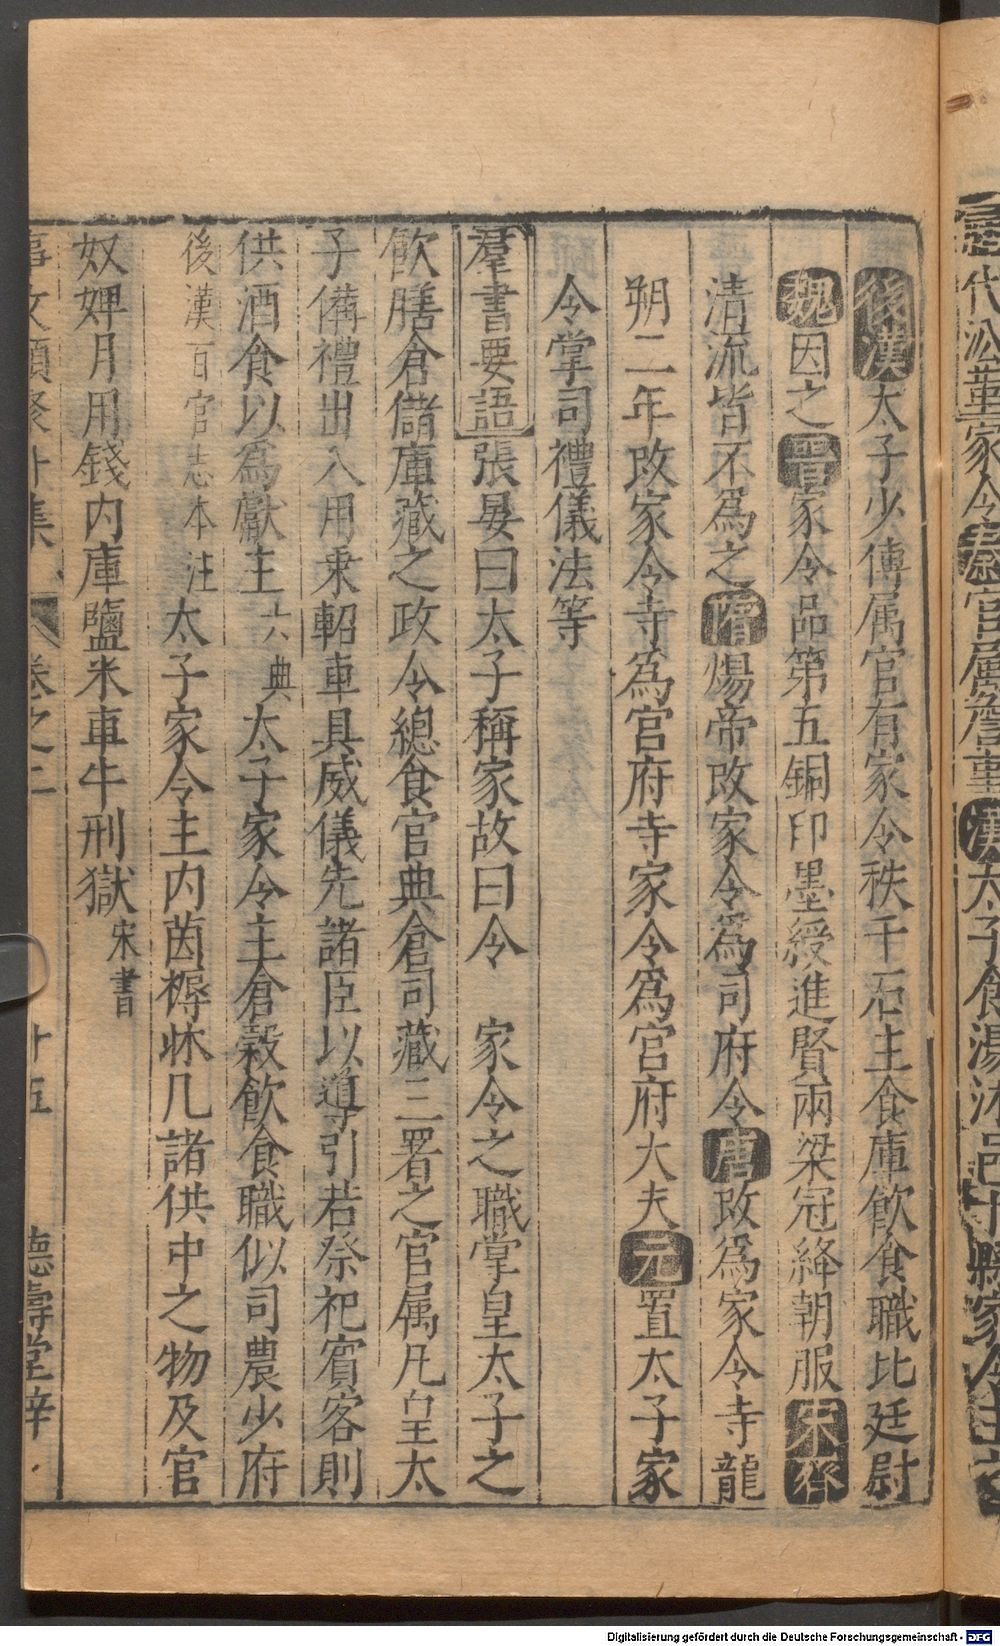 代沿革家令官属詹事漢太子食湯沐邑十縣家令主之
後漢太子少傅属官有家令秩千石主食庫飲食職比廷尉
魏因之晉家令品第五銅印墨綬進賢兩梁冠絳朝服宋齊
清流皆不為之隋煬帝改家令為司府令唐改為家令寺龍
朔二年改家令寺為宫府寺家令為宫府大夫元置太子家
令掌司禮儀法等
羣書要語張晏曰太子稱家故曰令 家令之職掌皇太子之
飲膳倉儲庫藏之政令總食官典倉司藏三署之官属凡皇太
子備禮出入用乗軺車具威儀先諸臣以導引若祭祀賓客則
供酒食以為獻主六典 太子家令主倉穀飲食職似司農少府
後漢百官志本注 太子家令主内茵褥牀几諸供中之物及官
奴婢月用錢内庫鹽米車牛刑獄宋書
事文類聚外集 卷之二 十五 德壽堂梓
Digitalisierung gefördert durch die Deutsche Forschungsgemeinschaft - DFG